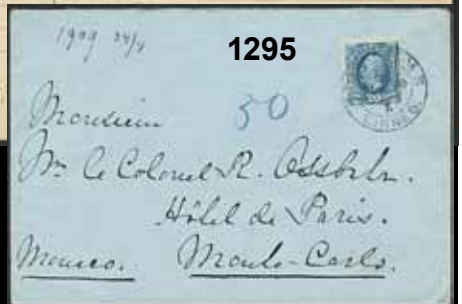 1909 24/4
1295
50
Monsieur
Mr le Colonel R.
Hôtel de Paris.
Monaco. Monte-Carlo.